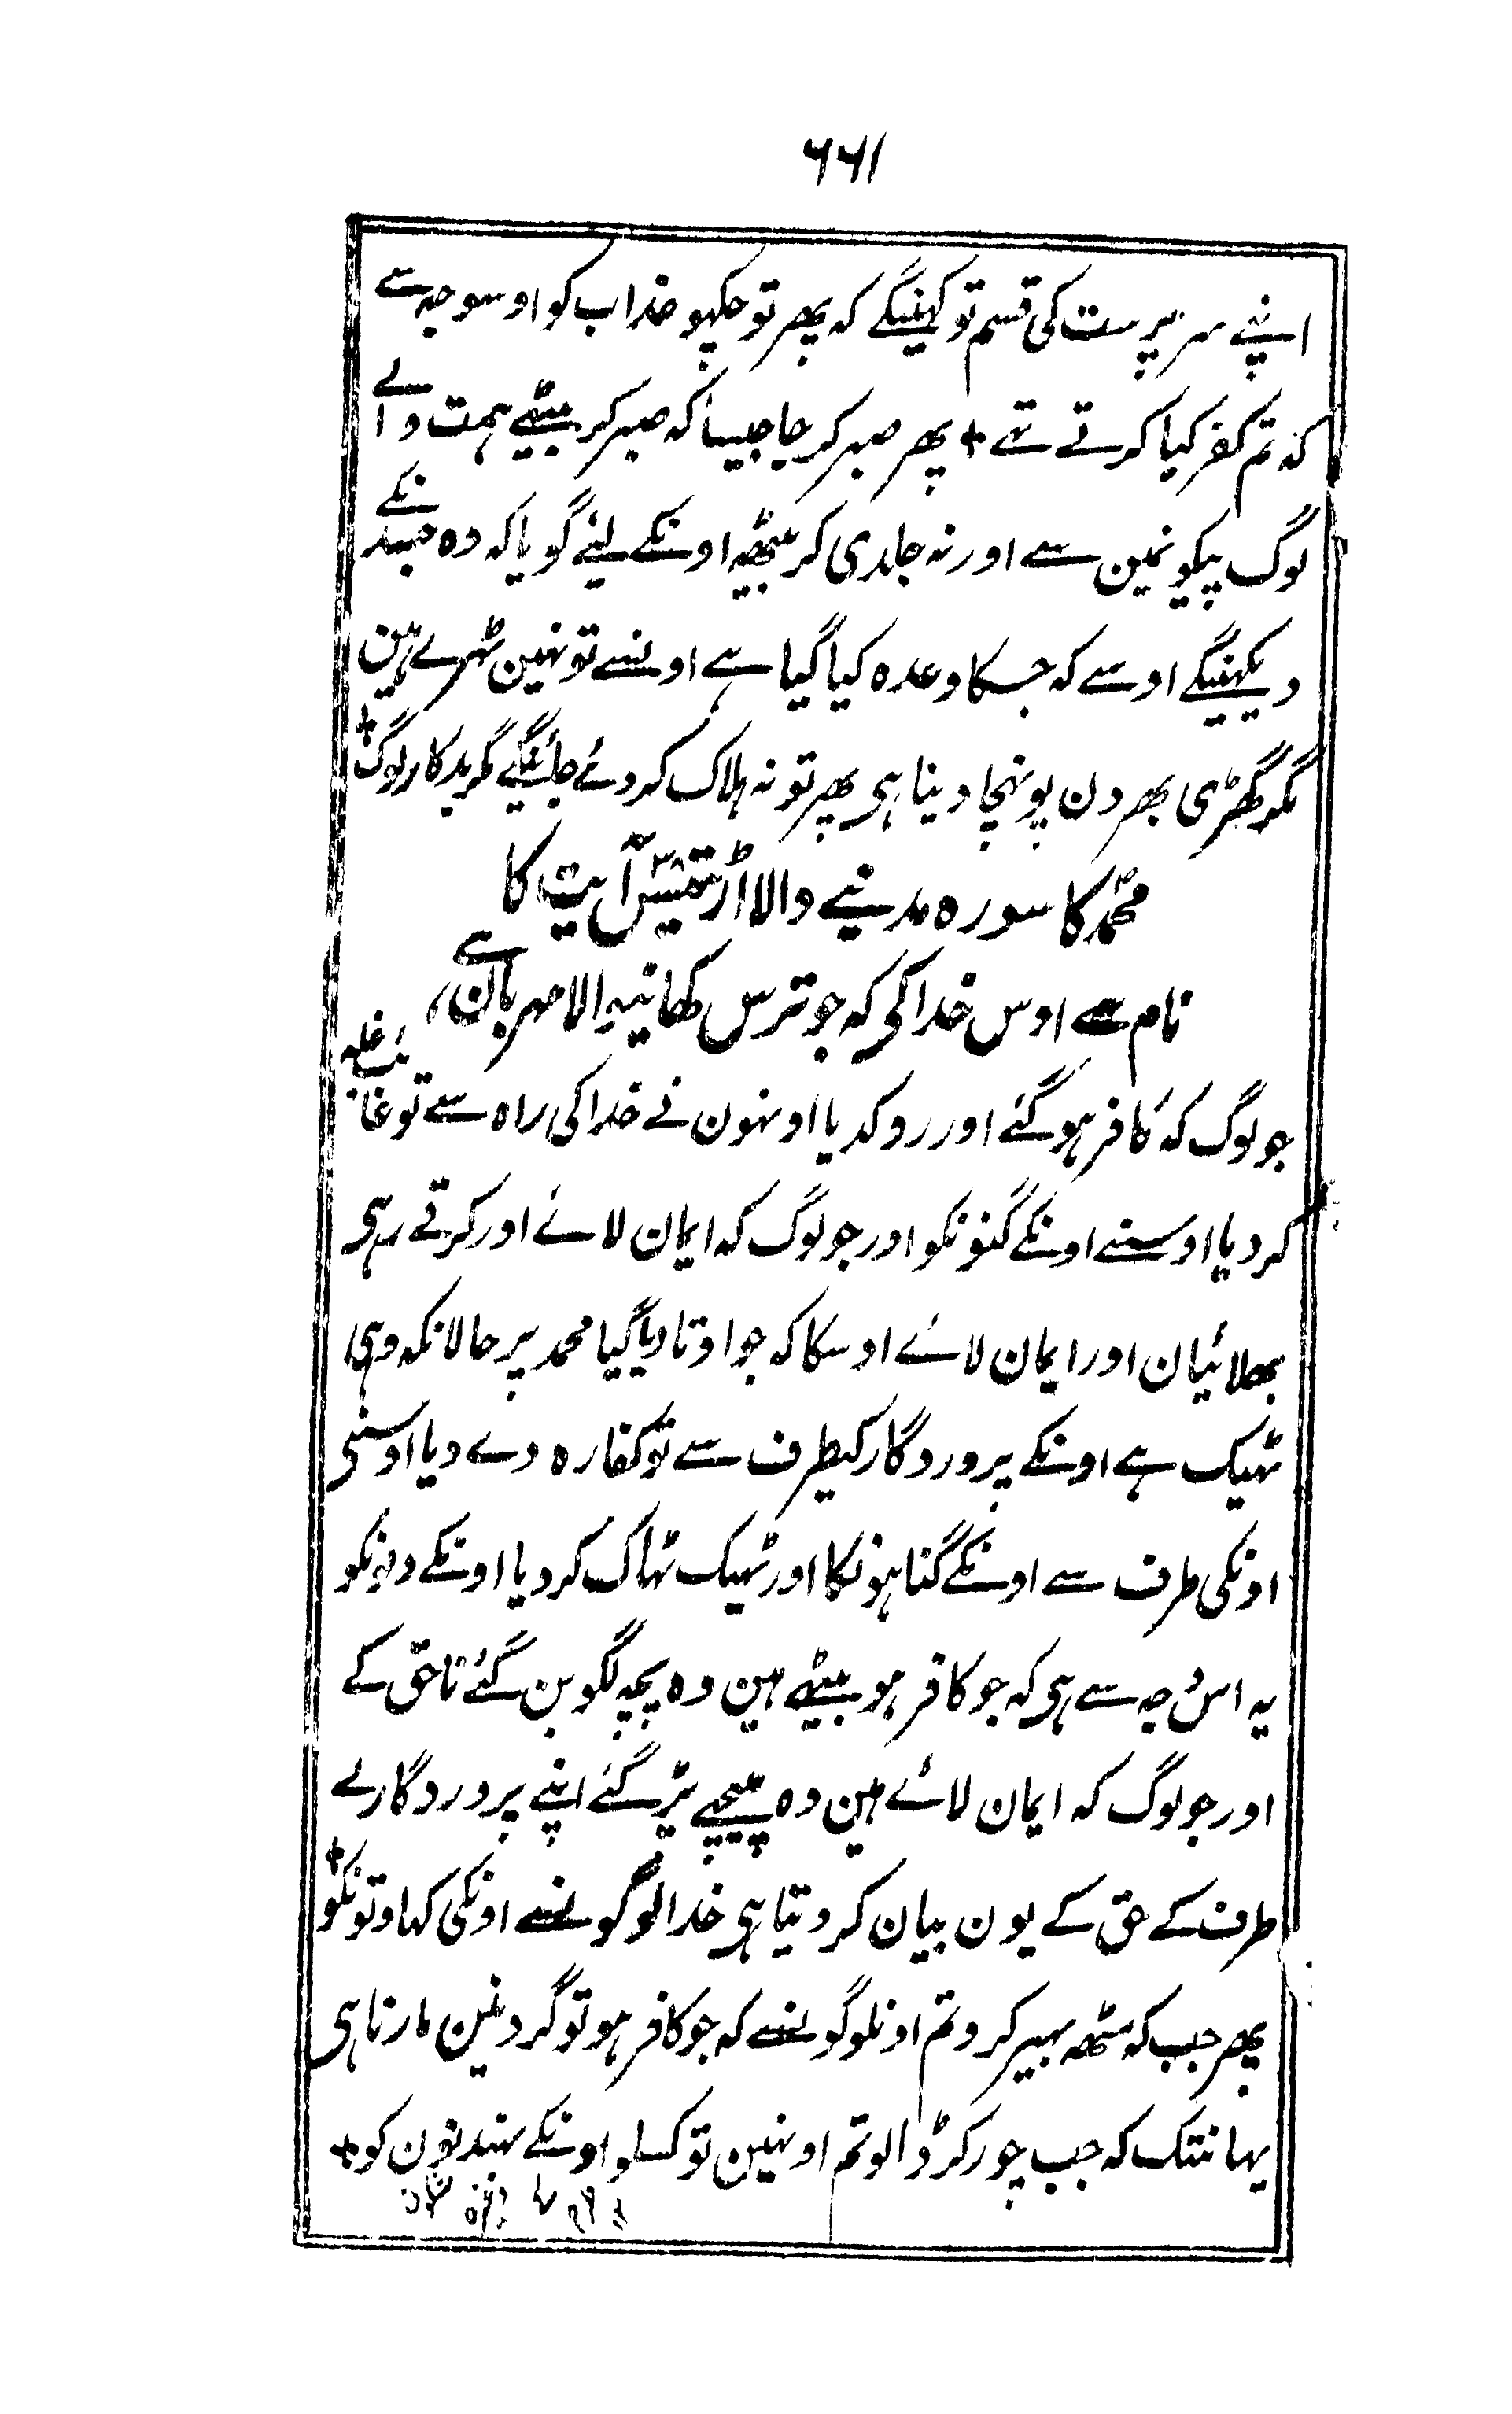 ۶۶۱
اپنے سرپرست کی قسم تو کہینگے کہ پھر تو چکہو عذاب کو اوسوجہ سے
کہ تم کفر کیا کرتے تھے + پھر صبر کر جا جیسا کہ صبر کر بیٹھے ہمت والے
لوگ پیکونمین سے اور نہ جلدی کر بیٹھہ اونکے لیئے گویا کہ وہ جسدن کے
دیکہینگے اوسے کہ جسکا وعدہ کیا گیا ہے اونسے تو نہین ٹہرے ہین
مگر گھڑی بھر دن پونہچا دینا ہی پھر تو نہ ہلاک کر دئے جائینگے مگر بدکار لوگ +
محمّد کا سورہ مدینے والا اڑتیس ۳۸ آیت کا
نام سے اوس خدا کی کہ جو ترس کھانیوالا مہربان ہے
جو لوگ کہ کافر ہو گئے اور روکدیا اونہون نے خدا کی راہ سے تو غائب غلہ
کر دیا اوسنے اونکے گنونکو اور جو لوگ کہ ایمان لائے اور کرتے رہی
بھلائیان اور ایمان لائے اوسکا کہ جو اوتارا گیا محمد پر حالانکہ وہی
ٹہیک ہے اونکے پروردگار کیطرف سے تو کفارہ دے دیا اوسنی
اونکی طرف سے اونکے گناہونکا اور ٹہیک ٹہاک کر دیا اونکے دلونکو
یہ اس وجہ سے ہی کہ جو کافر ہو بیٹھے ہین وہ پیچھ لگو بن گئے ناحق کے
اور جو لوگ کہ ایمان لائے ہین وہ پیچھے پڑ گئے اپنے پروردگار کے
طرف کے حق کے یون بیان کر دیتا ہی خدا لوگونسے اونکی کہاوتونکو +
پھر جب کہ مٹھہ بہیر کرو تم اونلوگونسے کہ جو کافر ہو تو گردنین مارنا ہی
یہانتک کہ جب چور کر ڈالو تم اونہین تو کسلو اونکے بندنون کو +